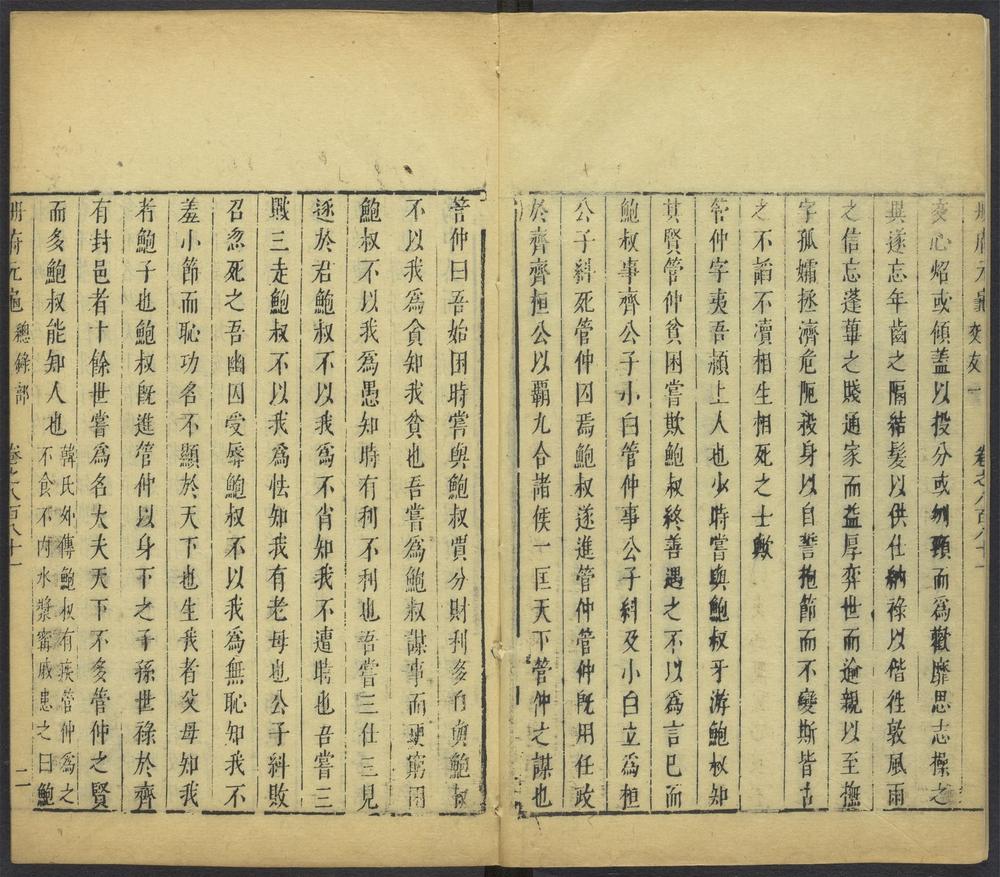 冊府元龜 交友一 卷之八百八十一
交心炤或傾蓋以投分或刎頸而爲歡靡思志操之
異遂忘年齒之隔結髮以供仕納祿以偕徃敦風雨
之信忘蓬蓽之賤通家而益厚弈世而逾親以至撫
字孤孀拯濟危阨殺身以自誓抱節而不變斯皆古
之不謟不瀆相生相死之士歟
管仲字夷吾潁上人也少時嘗與鮑叔牙游鮑叔知
其賢管仲貧困嘗欺鮑叔終善遇之不以爲言已而
鮑叔事齊公子小白管仲事公子糾及小白立爲桓
公子糾死管仲囚焉鮑叔遂進管仲管仲旣用任政
於齊齊桓公以霸九合諸侯一匡天下管仲之謀也
管仲曰吾始困時嘗與鮑叔賈分財利多自與鮑叔
不以我爲貧知我貧也吾嘗爲鮑叔謀事而更窮困
鮑叔不以我爲愚知時有利不利也吾嘗三仕三見
逐於君鮑叔不以我爲不肖知我不遭時也吾嘗三
戰三走鮑叔不以我爲怯知我有老母也公子糾敗
召忽死之吾幽囚受辱鮑叔不以我爲無恥知我不
羞小節而恥功名不顯於天下也生我者父母知我
者鮑子也鮑叔旣進管仲以身下之子孫世祿於齊
有封邑者十餘世嘗爲名大夫天下不多管仲之賢
而多鮑叔能知人也 韓氏外傳鮑叔有疾管仲爲之
不食不內水漿甯戚患之曰鮑
冊府元龜 總錄部 卷之八百八十一 二